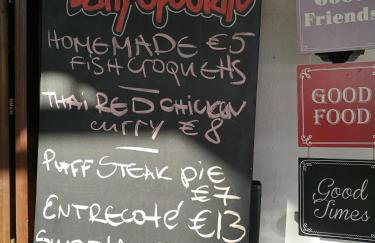 HOMEMADE €5
FISHCROQUETTS
THAI RED CHICKEN
CURRY €8
PUFF STEAK PIE
€7
ENTRECOTÉ €13
Friends
GOOD
FOOD
Good
Times